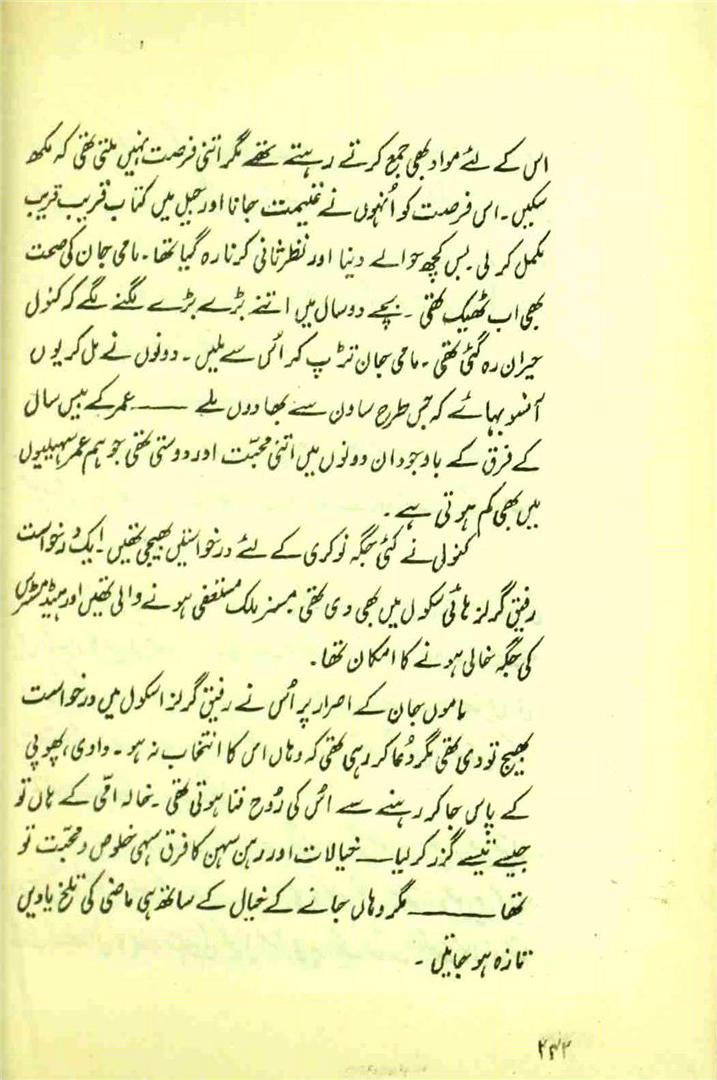 اس کے لئے مواد بھی جمع کرتے رہتے تھے مگر اتنی فرصت نہیں ملتی تھی کہ لکھ
سکیں۔ اس فرصت کو اُنہوں نے غنیمت جانا اور جیل میں کتاب قریب قریب
مکمل کر لی۔ بس کچھ حوالے دینا اور نظر ثانی کرنا رہ گیا تھا۔ مامی جان کی صحت
بھی اب ٹھیک تھی ۔ بچے دو سال میں اتنے بڑے بڑے لگنے لگے کہ کنول
حیران رہ گئی تھی ۔ مامی جان تڑپ کر اُس سے ملیں ۔ دونوں نے مل کر یوں
آنسو بہائے کہ جس طرح ساون سے بھادوں ملے ــــــ عمر کے بیس سال
کے فرق کے باوجود ان دونوں میں اتنی محبّت اور دوستی تھی جو ہم عمر سہیلیوں
میں بھی کم ہوتی ہے ۔
کنول نے کئی جگہ نوکری کے لئے درخواستیں بھیجی تھیں ۔ ایک درخواست
رفیق گرلز ہائی سکول میں بھی دی تھی مسز ملک مستعفی ہونے والی تھیں اور ہیڈ مسٹریس
کی جگہ خالی ہونے کا امکان تھا۔
ماموں جان کے اصرار پر اُس نے رفیق گرلز اسکول میں درخواست
بھیج تو دی تھی مگر دُعا کر رہی تھی کہ وہاں اس کا انتخاب نہ ہو ۔ دادی ، پھوپی
کے پاس جا کر رہنے سے اُس کی رُوح فنا ہوتی تھی ۔ خالہ امّی کے ہاں تو
جیسے تیسے گزر کر لیا ـــ خیالات اور رہن سہن کا فرق سہی خلوص و محبّت تو
تھا ــــــ مگر وہاں جانے کے خیال کے ساتھ ہی ماضی کی تلخ یادیں
تازہ ہو جاتیں ۔